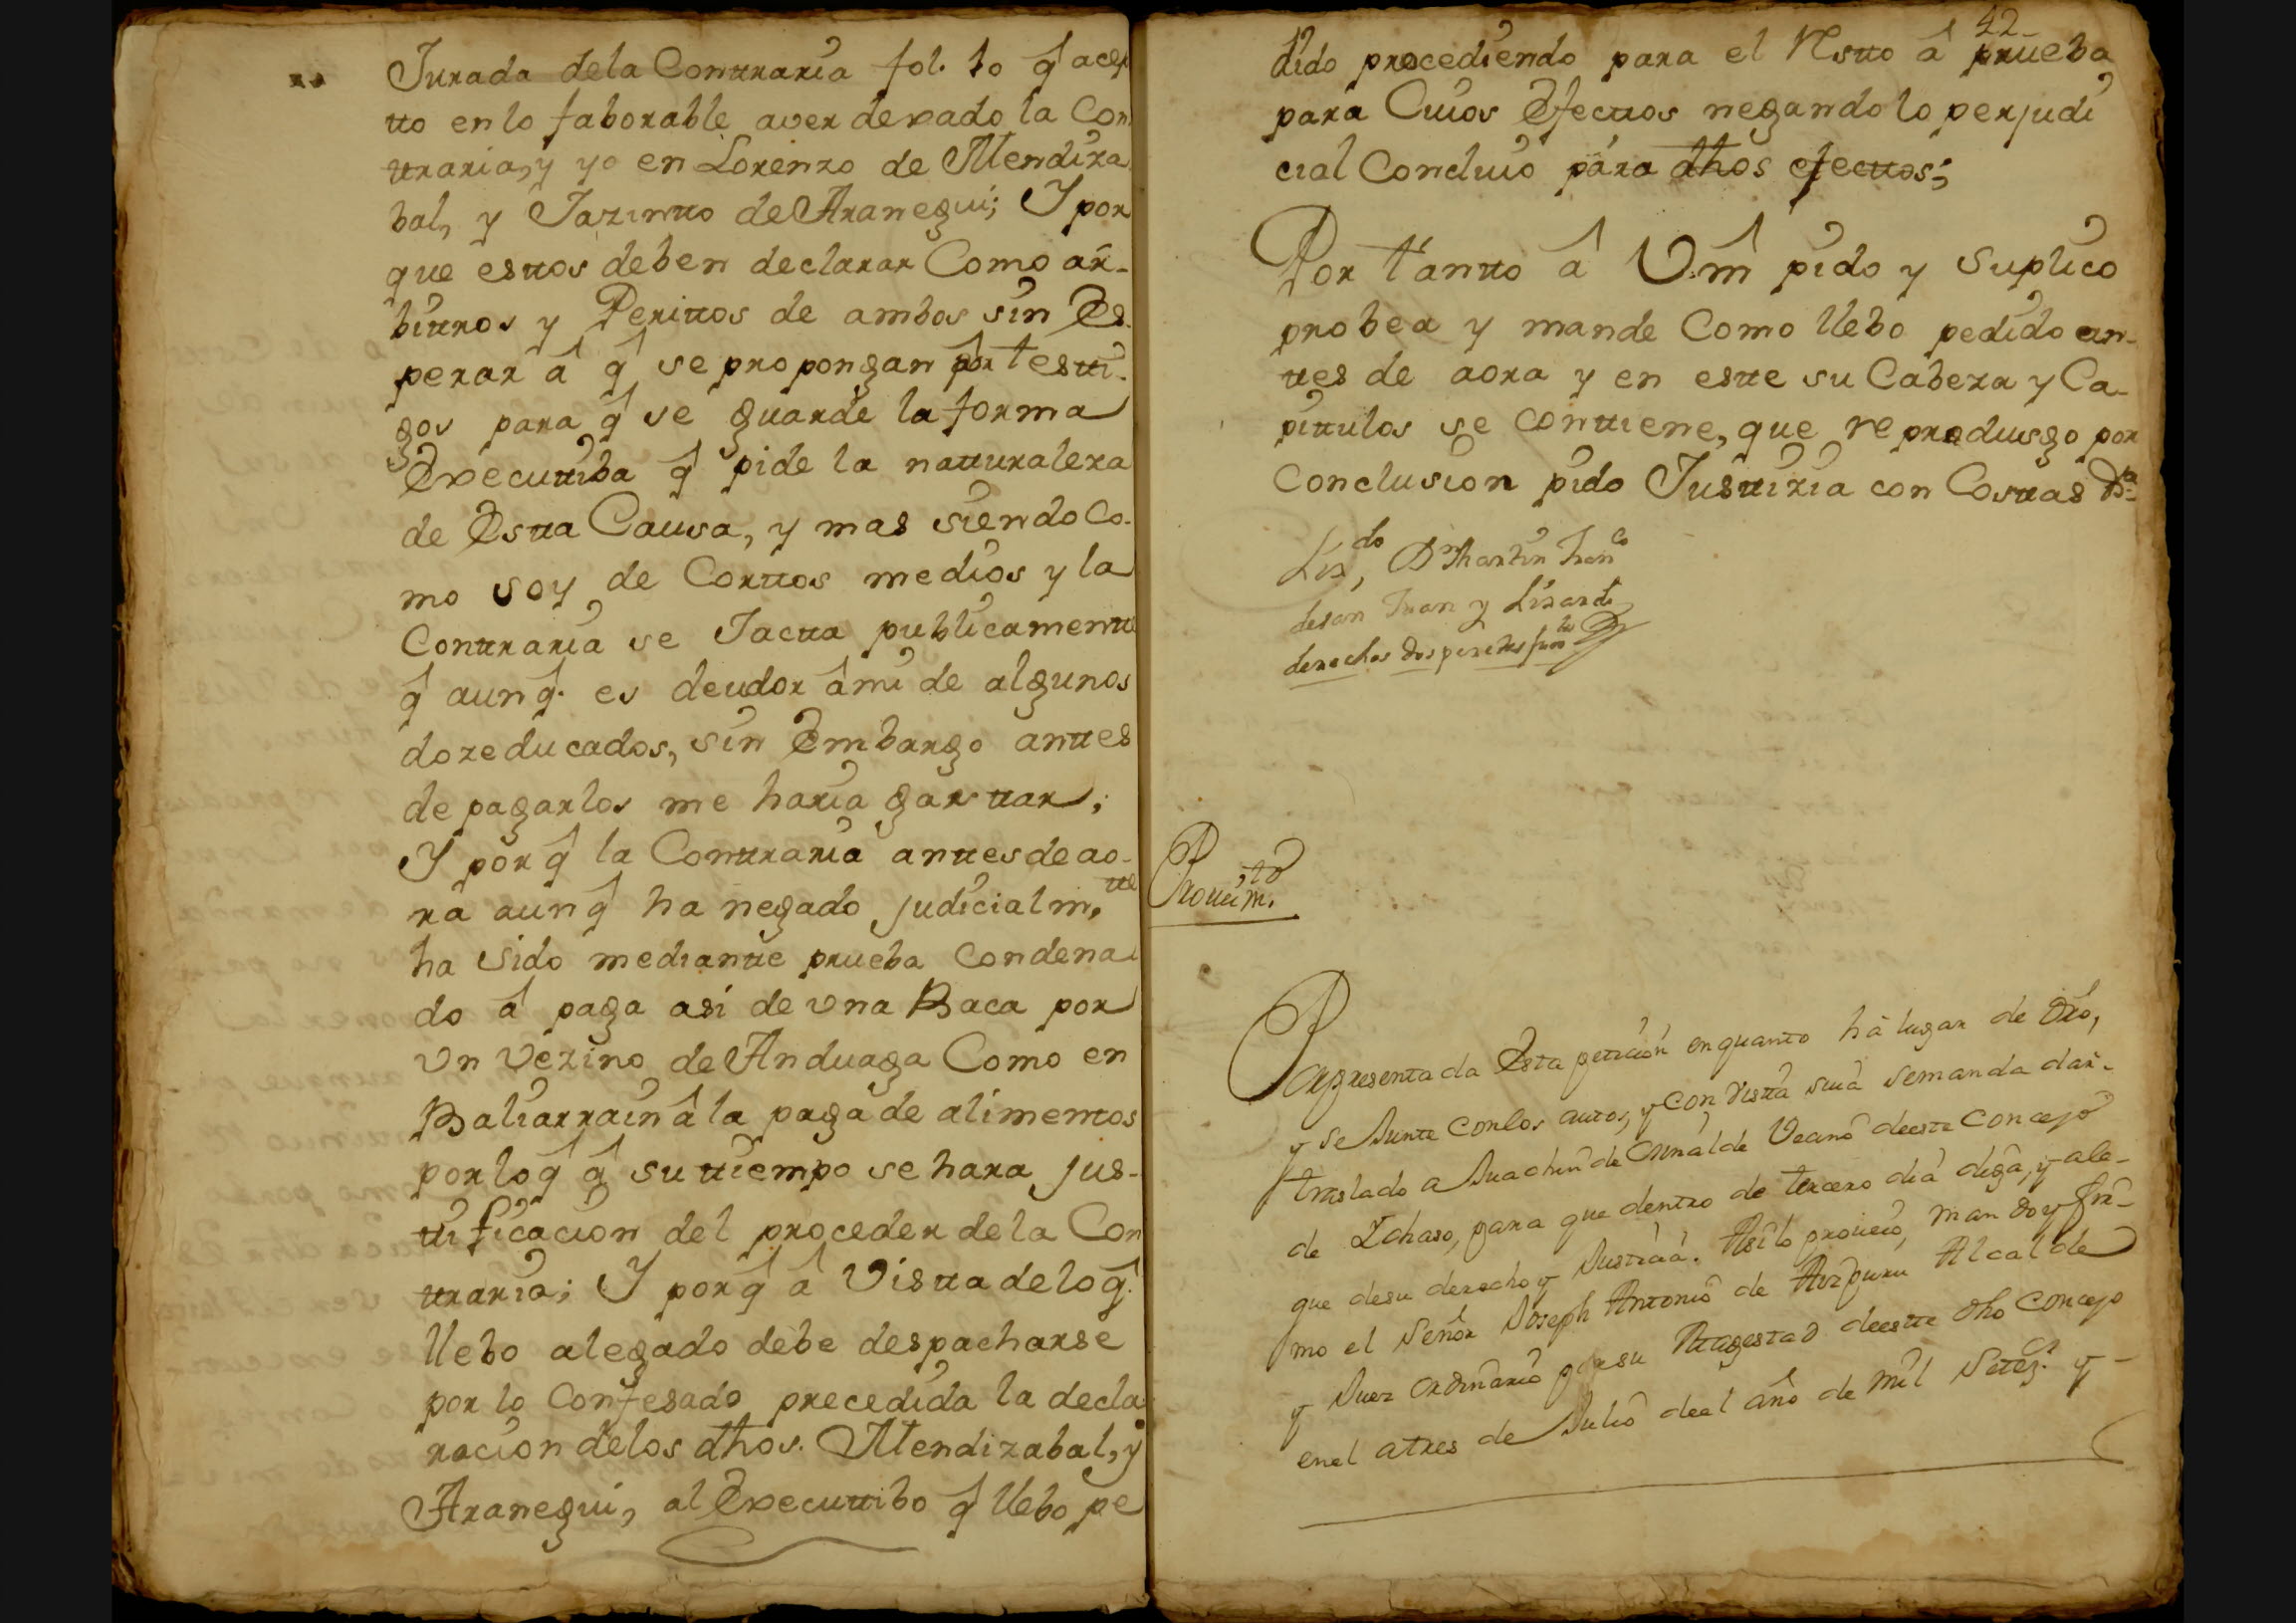 Jurada dela Contraria fol. 10 q̂ acep
tto en lo faborable aver dexado la Con
ttraria, y yo en Lorenzo de Mendiza
bal, y Jazintto de Aranegui; Y por
que esttos deben declarar Como ar-
bittros y Perittos de ambos sin Es-
perar â q̂ se propongan por testti-
gos para q̂ se guarde la forma
Executtiba q̂ pide la natturaleza
de Estta Causa, y mas siendo Co-
mo soy de Corttos medios y la
Conttraria se Jactta publicamentte
q̂ aunq̂. es deudor â mi de algunos
doze ducados, sin Embargo anttes
de pagarlos me haria gasttar;
Y por q̂ la Conttraria anttes de ao-
ra aun q̂ ha negado judicialm.tte
ha sido mediantte prueba Condena
do â paga asi de vna Baca por
vn vezino de Anduaga Como en
Baliarrain â la paga de alimentos
por lo q̂ â su ttiempo se hara jus-
ttificacion del proceder de la Con
ttraria; Y porq̂ â Vistta de lo q̂.
llebo alegado debe despacharse
por lo Confesado precedida la decla
racion delos dhos. Mendizabal, y
Aranegui, al Executtibo q̂ llebo pe
42
dido procediendo para el Restto â prueba
para Cuios Efecttos negando lo perjudi
cial Concluio para dhos efecttos;
Por tantto â V.m̂ pido y suplico
probea y mande Como llebo pedido an-
ttes de aora y en estte su Cabeza y Ca-
pittulos se conttiene, que reproduzgo por
Conclusion pido Justtizia con Costtas &a
Liz.do Dn Martin Franco
de san Juan y Lizardi
derechos dos
Proueim.to
Por presentada Esta peticion en quanto hâ lugar de dro,
y se Junte con los autos, y con vista suia se manda dar
traslado a Juachin de Vecino de este Concejo
de Ichaso, para que dentro de tercero dia diga, y ale-
gue de su derecho y Justicia. Asi lo proueio, mando y fir-
mo el Señor Joseph Antonio de Aizpuru Alcalde
y Juez ordinario por su Magestad de este dho Concejo
en el a tres de Julio de el año de mil Setez.s y